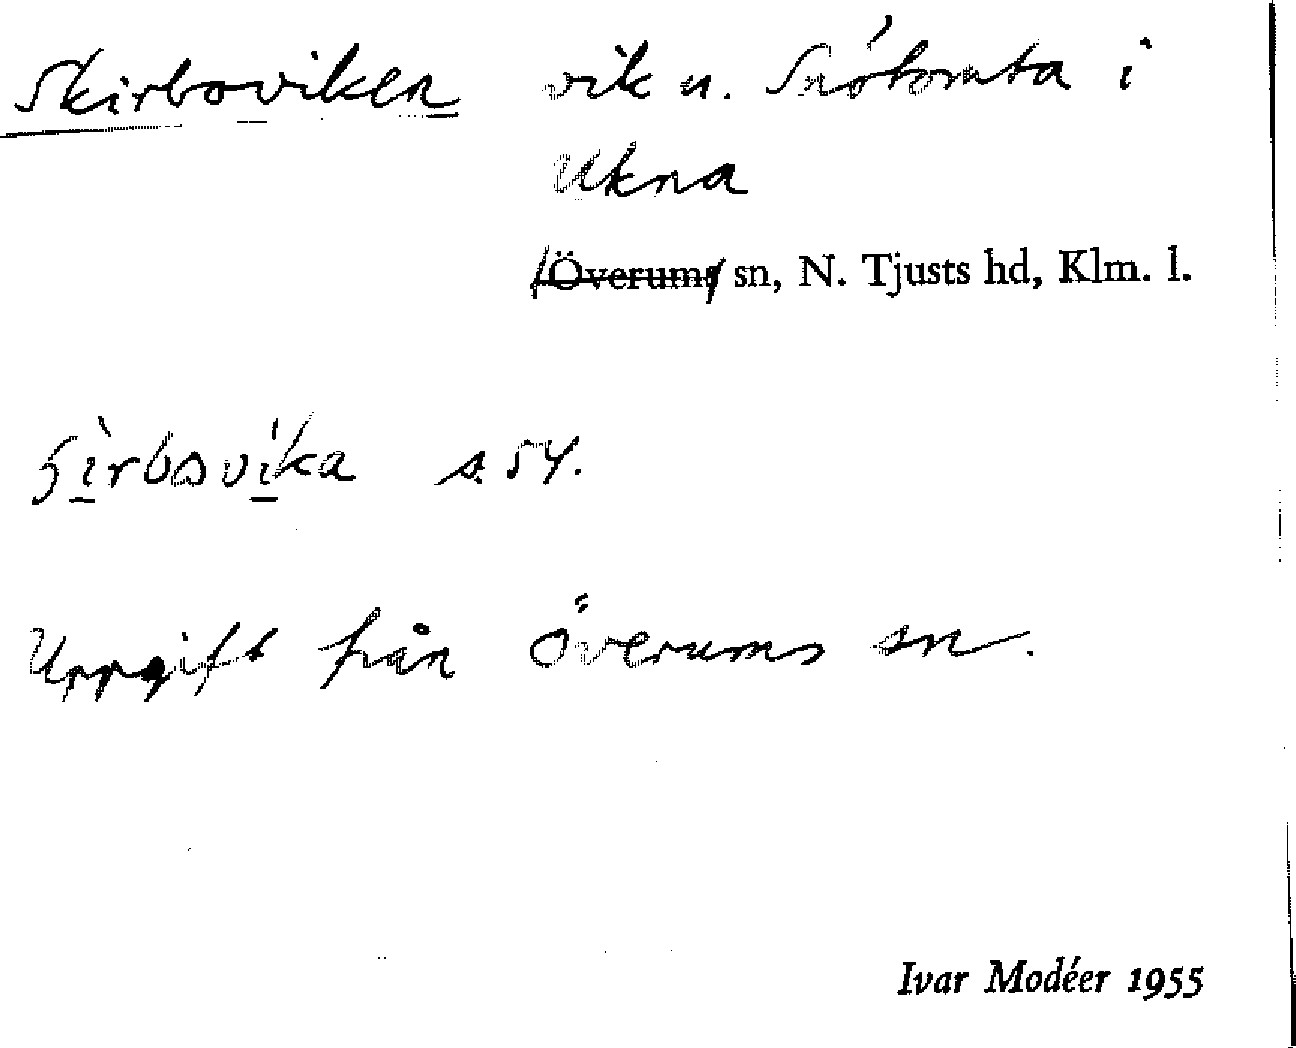 Skirboviken vik u. Snótomta i
Ukna
Överums sn, N. Tjusts hd, Klm. l.
s. 54.
Uppgift från Överums sn.
Ivar Modéer 1955